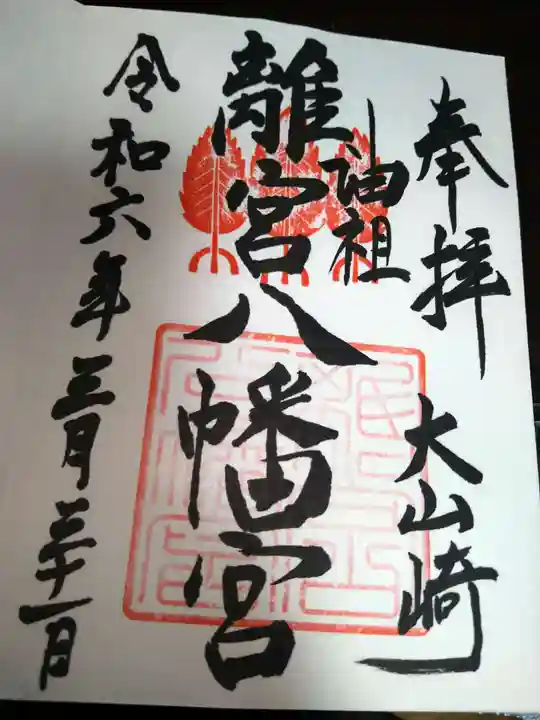 奉拝 大山崎
油祖
離宮八幡宮
令和六年三月三十一日